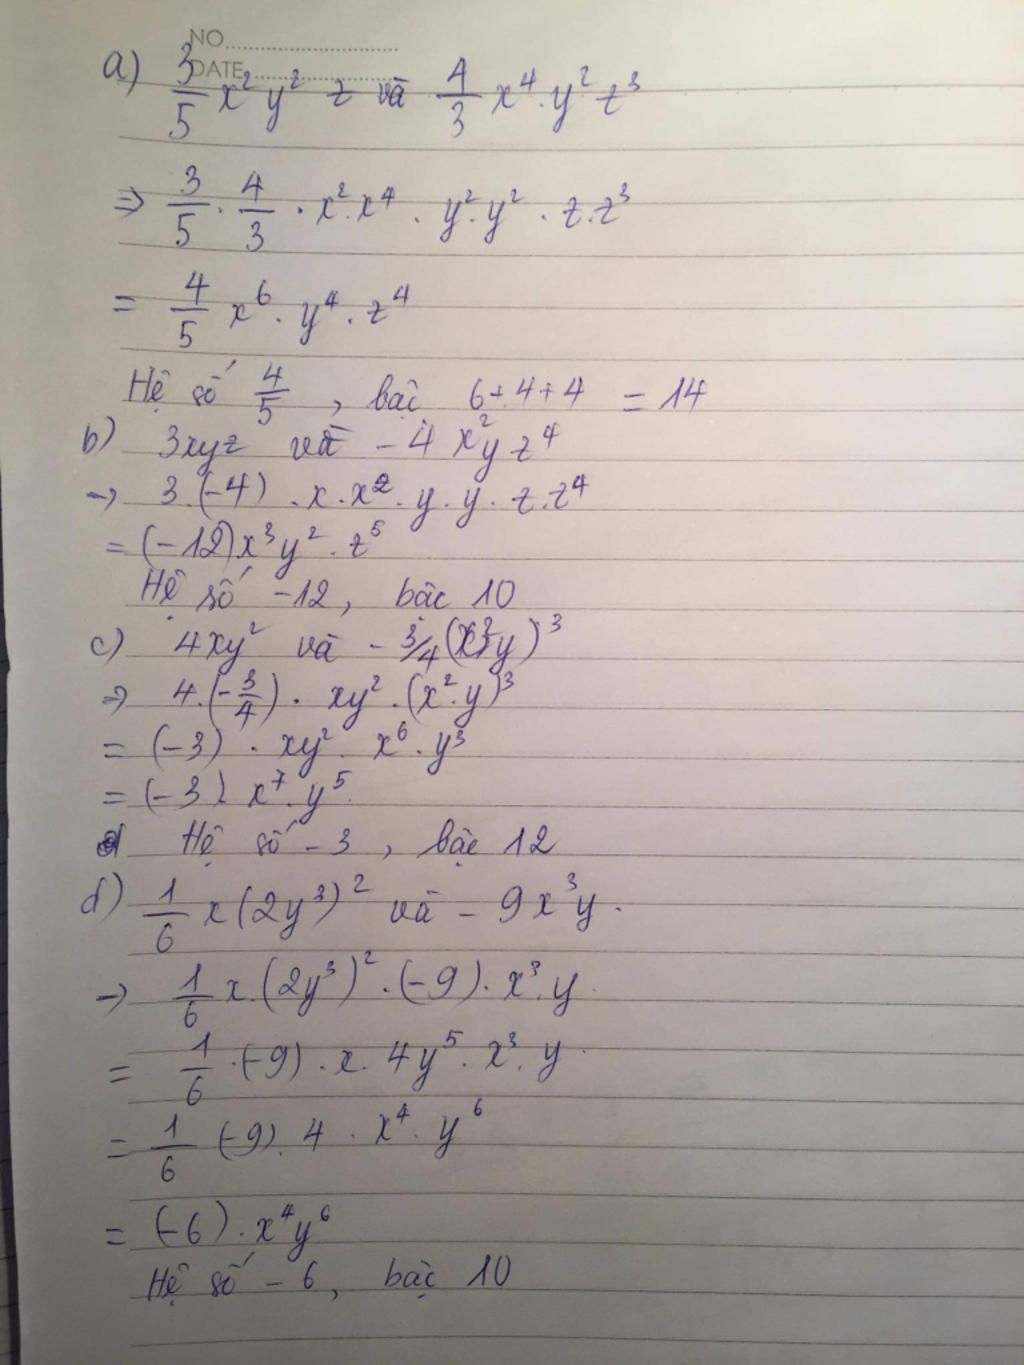 NO
DATE
a) 3/5 x² y² z và 4/3 x⁴. y² z³
=> 3/5 . 4/3 . x². x⁴ . y². y² . z. z³
= 4/5 x⁶ . y⁴ . z⁴
Hệ số 4/5 , bậc 6 + 4 + 4 = 14
b) 3xyz và - 4 x² y z⁴
-> 3.(-4) . x. x² . y. y. z. z⁴
= (-12) x³ y² . z⁵
Hệ số -12, bậc 10
c) 4xy² và - 3/4 (x² y)³
=> 4.(-3/4) . xy² . (x². y)³
= (-3) . xy² x⁶ . y³
= (-3) x⁷. y⁵
Hệ số - 3 , bậc 12
d) 1/6 x (2y³)² và - 9 x³ y .
-> 1/6 x. (2y³)² . (-9). x³. y .
= 1/6 .(-9) . x. 4y⁵ . x³. y .
= 1/6 (-9). 4 . x⁴. y⁶
= (-6) . x⁴ y⁶
Hệ số - 6, bậc 10